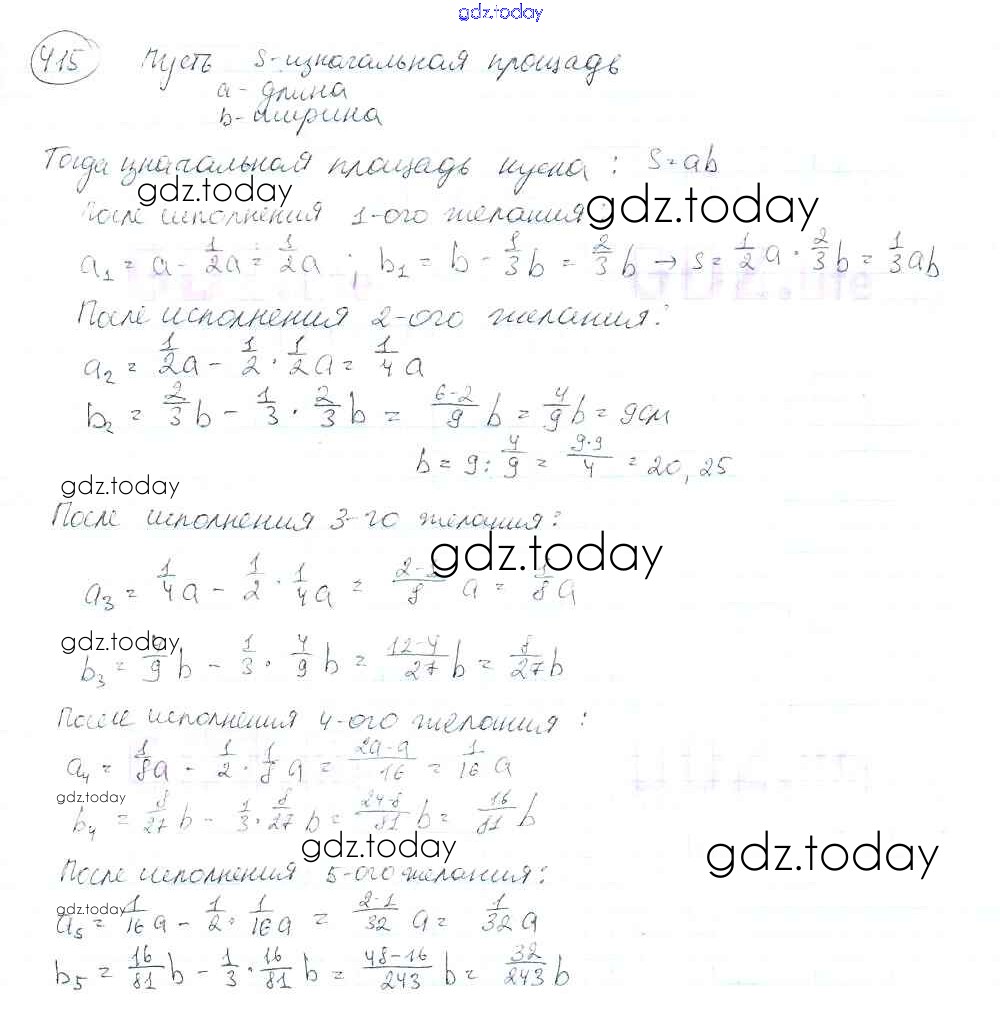 gdz.today
415 Пусть S-изначальная площадь
a - длина
b - ширина
Тогда изначальная площадь куска : S = ab
gdz.today
После исполнения 1-ого желания: gdz.today
a₁ = a - 1/2a = 1/2a ; b₁ = b - 1/3b = 2/3b → S = 1/2a · 2/3b = 1/3ab
После исполнения 2-ого желания:
a₂ = 1/2a - 1/2 · 1/2a = 1/4a
b₂ = 2/3b - 1/3 · 2/3b = (6-2)/9 b = 4/9b = 9см
b = 9 : 4/9 = (9·9)/4 = 20,25
gdz.today
После исполнения 3-го желания:
gdz.today
a₃ = 1/4a - 1/2 · 1/4a = (2-1)/8 a = 1/8a
gdz.today
b₃ = 4/9b - 1/3 · 4/9b = (12-4)/27 b = 8/27b
После исполнения 4-ого желания :
a₄ = 1/8a - 1/2 · 1/8a = (2a-a)/16 = 1/16a
gdz.today
b₄ = 8/27b - 1/3 · 8/27b = (24-8)/81 b = 16/81b
gdz.today gdz.today
После исполнения 5-ого желания:
gdz.today
a₅ = 1/16a - 1/2 · 1/16a = (2-1)/32 a = 1/32a
b₅ = 16/81b - 1/3 · 16/81b = (48-16)/243 b = 32/243b